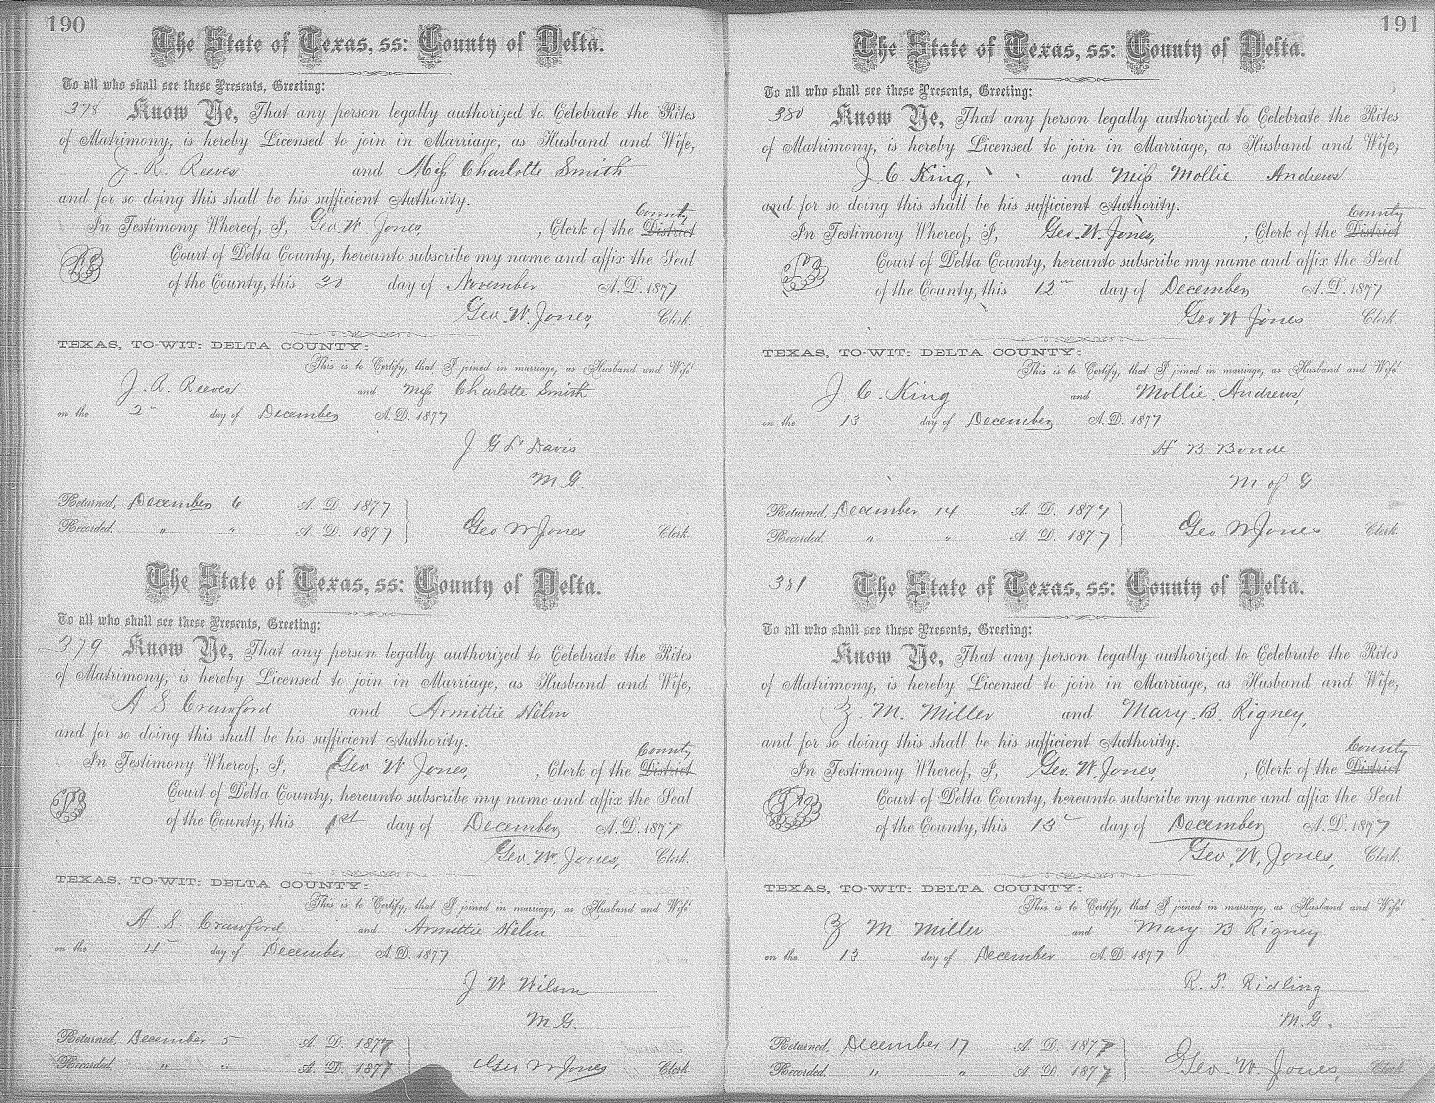 190
The State of Texas, ss: County of Delta.
To all who shall see these Presents, Greeting:
378 Know Ye, That any person legally authorized to Celebrate the Rites
of Matrimony, is hereby Licensed to join in Marriage, as Husband and Wife,
J. R. Reeves and Miss Charlotte Smith
and for so doing this shall be his sufficient Authority.
County
In Testimony Whereof, I, Geo. W. Jones, Clerk of the District
Court of Delta County, hereunto subscribe my name and affix the Seal
of the County, this 30 day of November A. D. 1877
Geo. W. Jones, Clerk.
TEXAS, TO-WIT: DELTA COUNTY:
This is to Certify, that I joined in marriage, as Husband and Wife
J. R. Reeves and Miss Charlotte Smith
on the 2 day of December A. D. 1877
J G L Davis
M. G.
Returned, December 6 A. D. 1877
Recorded, " " A. D. 1877 Geo W Jones Clerk.
The State of Texas, ss: County of Delta.
To all who shall see these Presents, Greeting:
379 Know Ye, That any person legally authorized to Celebrate the Rites
of Matrimony, is hereby Licensed to join in Marriage, as Husband and Wife,
A S Crawford and Armittie Helm
and for so doing this shall be his sufficient Authority.
County
In Testimony Whereof, I, Geo W Jones, Clerk of the District
Court of Delta County, hereunto subscribe my name and affix the Seal
of the County, this 1st day of December A. D. 1877
Geo. W. Jones, Clerk.
TEXAS, TO-WIT: DELTA COUNTY:
This is to Certify, that I joined in marriage, as Husband and Wife
A S Crawford and Armittie Helm
on the day of December A. D. 1877
J W Wilson
M. G.
Returned, December 5 A. D. 1877
Recorded, " " A. D. 1877 Geo W Jones Clerk
191
The State of Texas, ss: County of Delta.
To all who shall see these Presents, Greeting:
380 Know Ye, That any person legally authorized to Celebrate the Rites
of Matrimony, is hereby Licensed to join in Marriage, as Husband and Wife,
J. C. King, and Miss Mollie Andrews
and for so doing this shall be his sufficient Authority.
County
In Testimony Whereof, I, Geo. W. Jones, Clerk of the District
Court of Delta County, hereunto subscribe my name and affix the Seal
of the County, this 12 day of December A. D. 1877
Geo W Jones Clerk.
TEXAS, TO-WIT: DELTA COUNTY:
This is to Certify, that I joined in marriage, as Husband and Wife
J C. King and Mollie Andrews,
on the 13 day of December A. D. 1877
H B Bonde
M of G
Returned, December 14 A. D. 1877
Recorded, " " A. D. 1877 Geo W Jones Clerk.
381 The State of Texas, ss: County of Delta.
To all who shall see these Presents, Greeting:
Know Ye, That any person legally authorized to Celebrate the Rites
of Matrimony, is hereby Licensed to join in Marriage, as Husband and Wife,
Z. M. Miller and Mary. B. Rigney,
and for so doing this shall be his sufficient Authority.
County
In Testimony Whereof, I, Geo. W. Jones, Clerk of the District
Court of Delta County, hereunto subscribe my name and affix the Seal
of the County, this 13 day of December A. D. 1877
Geo. W. Jones, Clerk.
TEXAS, TO-WIT: DELTA COUNTY:
This is to Certify, that I joined in marriage, as Husband and Wife
Z M Miller and Mary B Rigney
on the 13 day of December A. D. 1877
R. P. Ridling
M. G.
Returned, December 17 A. D. 1877
Recorded, " " A. D. 1877 Geo. W. Jones, Clerk